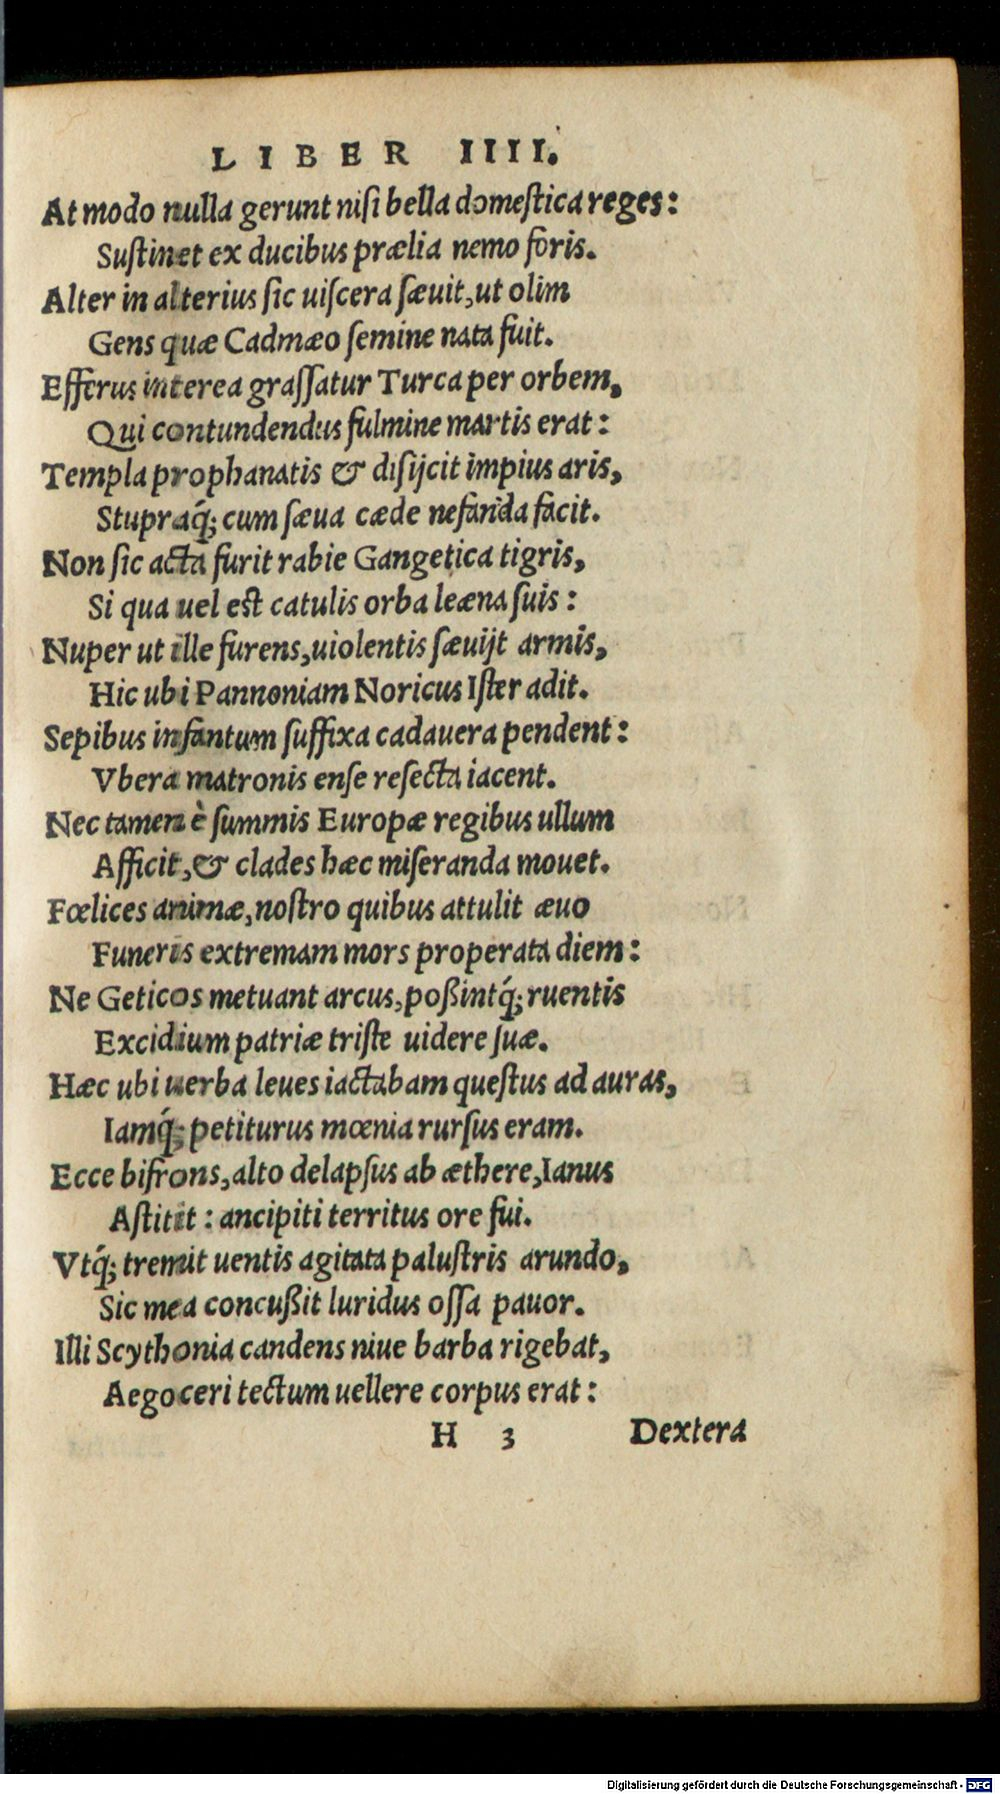 LIBER IIII.
At modo nulla gerunt niſi bella domeſtica reges:
Suſtinet ex ducibus prælia nemo foris.
Alter in alterius ſic uiſcera ſæuit, ut olim
Gens quæ Cadmæo ſemine nata fuit.
Efferus interea graſſatur Turca per orbem,
Qui contundendus fulmine martis erat:
Templa prophanatis & diſijcit impius aris,
Stupraq́; cum ſæua cæde nefanda facit.
Non ſic acta furit rabie Gangetica tigris,
Si qua uel eſt catulis orba leæna ſuis:
Nuper ut ille furens, uiolentis ſæuijt armis,
Hic ubi Pannoniam Noricus Iſter adit.
Sepibus infantum ſuffixa cadauera pendent:
Vbera matronis enſe reſecta iacent.
Nec tamen è ſummis Europæ regibus ullum
Afficit, & clades hæc miſeranda mouet.
Fœlices animæ, noſtro quibus attulit æuo
Funeris extremam mors properata diem:
Ne Geticos metuant arcus, poßintq́; ruentis
Excidium patriæ triſte uidere ſuæ.
Hæc ubi uerba leues iactabam queſtus ad auras,
Iamq́; petiturus mœnia rurſus eram.
Ecce bifrons, alto delapſus ab æthere, Ianus
Aſtitit: ancipiti territus ore fui.
Vtq́; tremit uentis agitata paluſtris arundo,
Sic mea concußit luridus oſſa pauor.
Illi Scythonia candens niue barba rigebat,
Aegoceri tectum uellere corpus erat:
H 3 Dextera
Digitalisierung gefördert durch die Deutsche Forschungsgemeinschaft - DFG